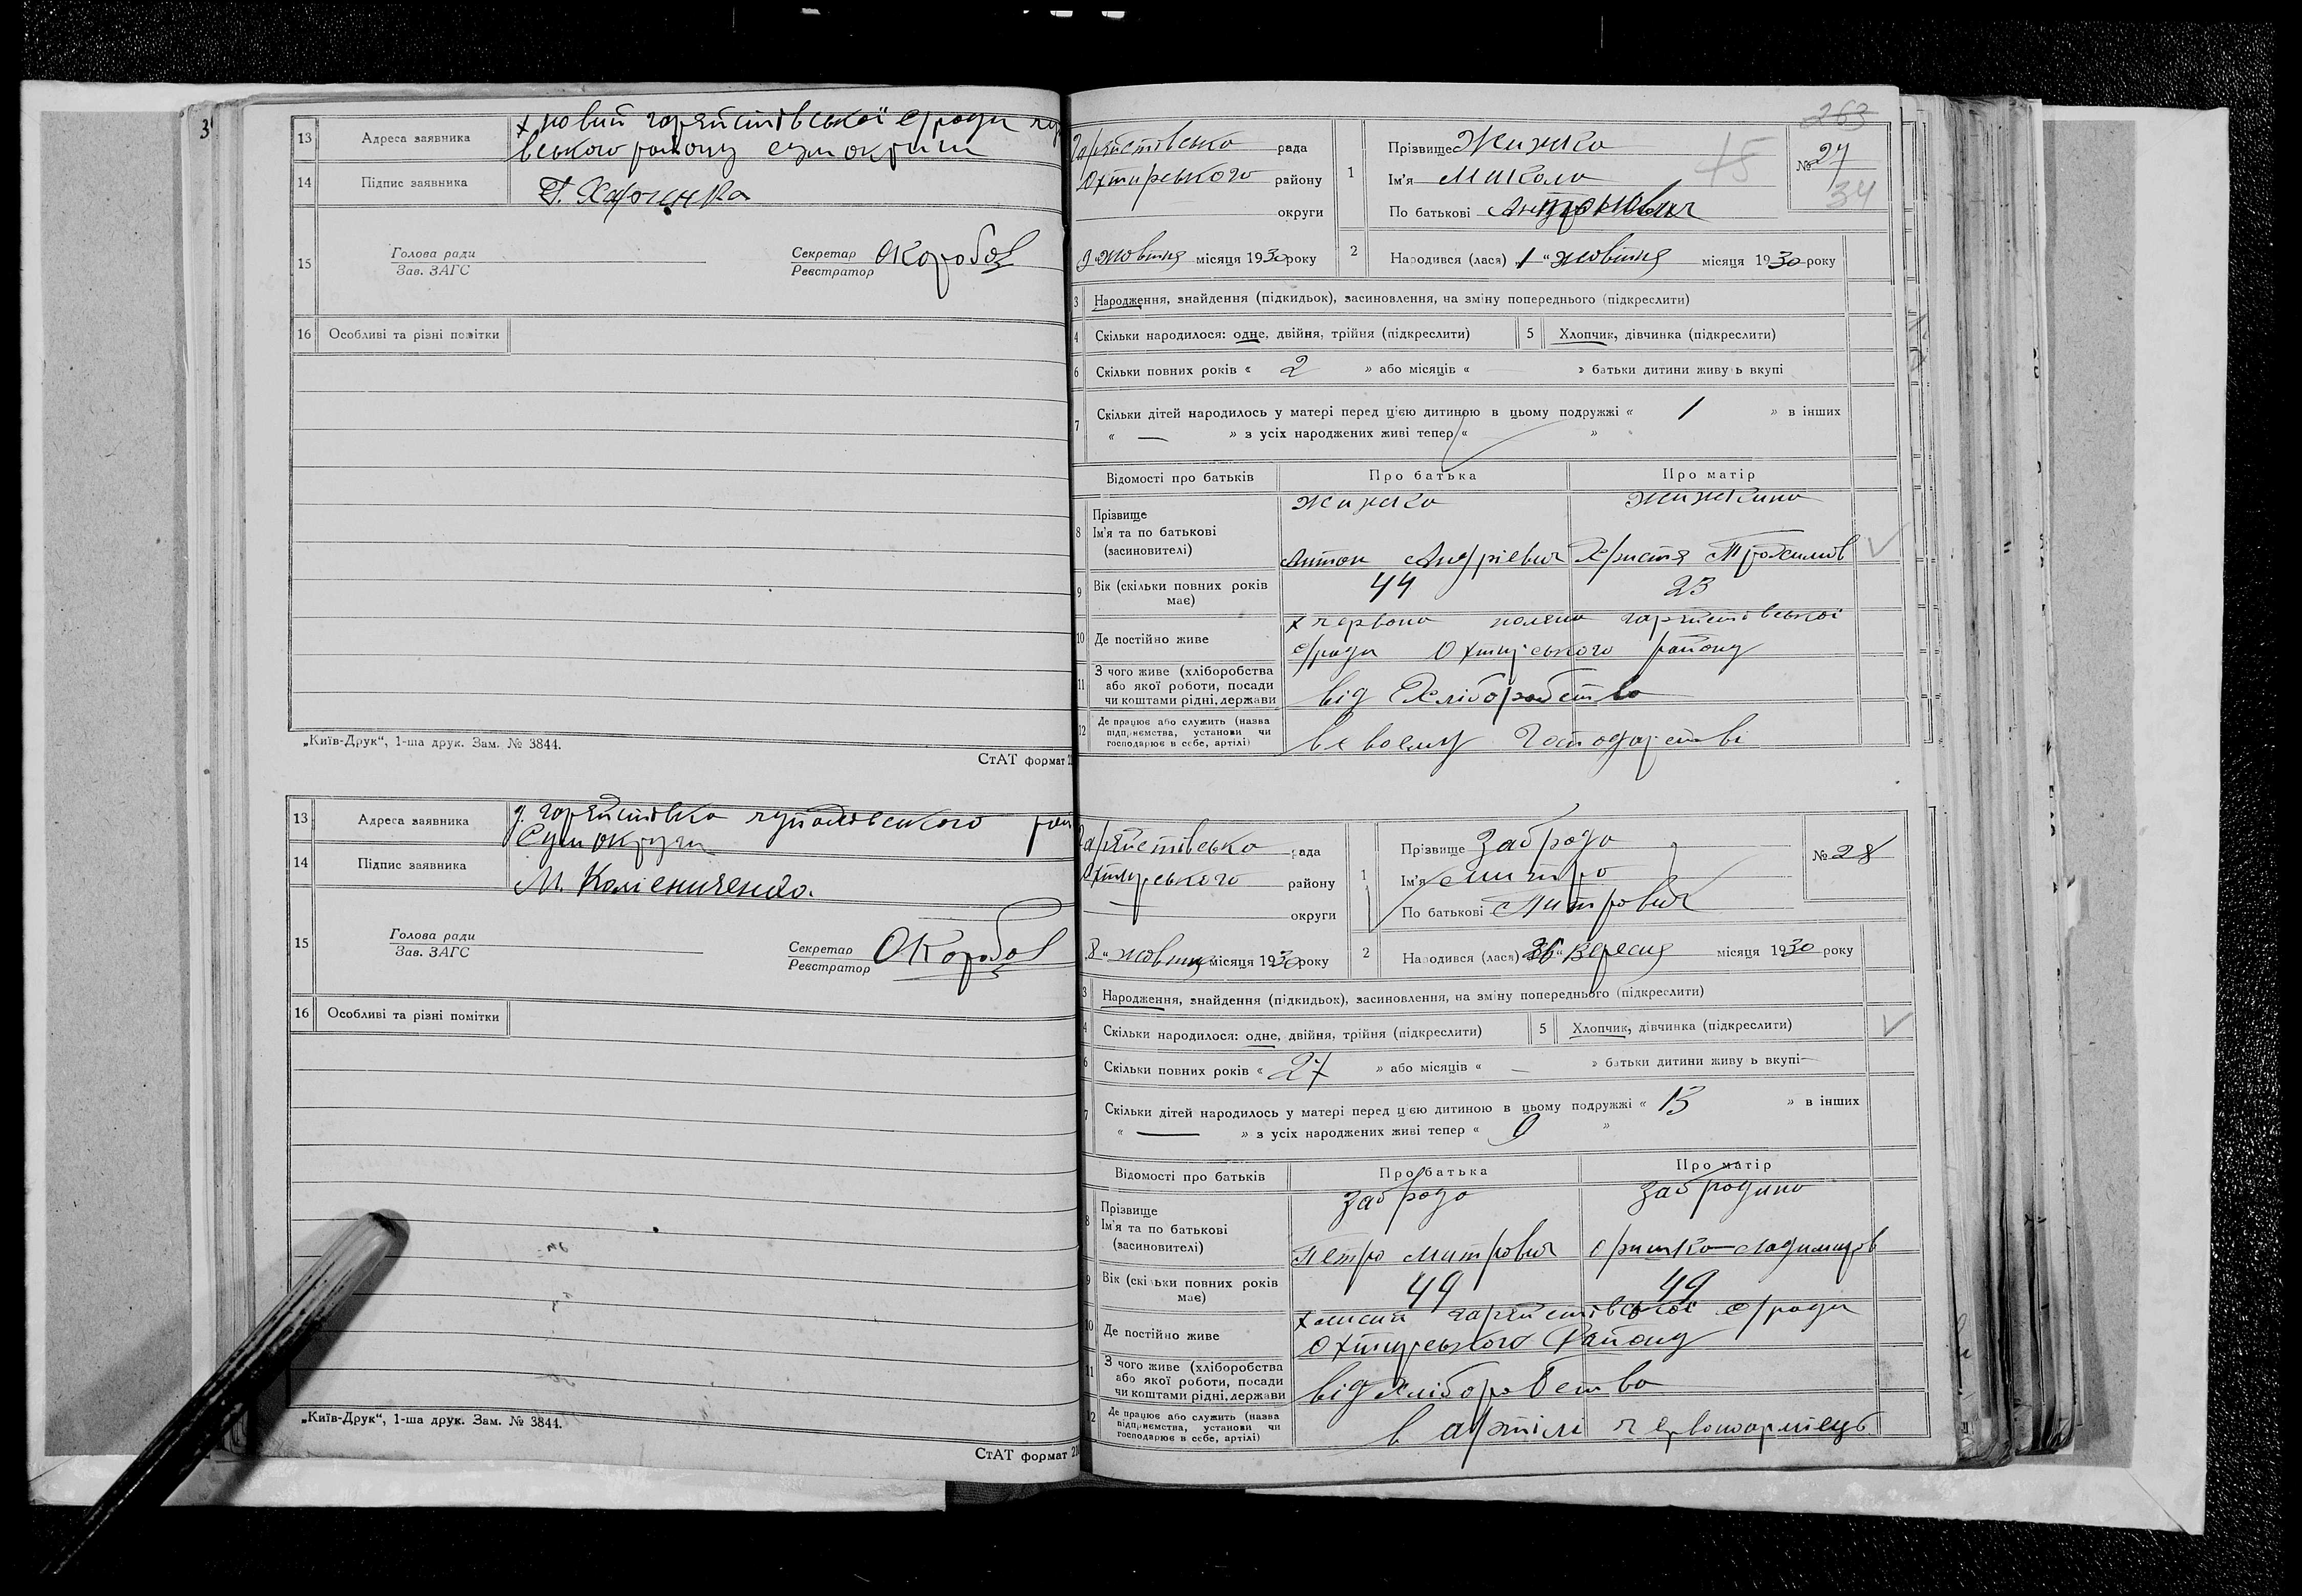 3
13 Адреса заявника х новий гаряйстівської с/ради
вського району сумокруги
14 Підпис заявника
15 Голова ради
Зав. ЗАГС
Секретар
Реєстратор ОКоробов
16 Особливі та різні помітки
„Київ-Друк“, 1-ша друк. Зам. № 3844.
СтАТ формат
13 Адреса заявника гаряйстівка
Сумокруги
14 Підпис заявника М. Колісниченко.
15 Голова ради
Зав. ЗАГС
Секретар
Реєстратор ОКоробов
16 Особливі та різні помітки
„Київ-Друк“, 1-ша друк. Зам. № 3844.
СтАТ формат
263
Гаряйстівська рада
Охтирського району
округи
9 жовтня місяця 1930 року
1 Прізвище Жижка
Ім'я Микола
По батькові Антонович
№ 27
34
15
2 Народився (лася) „1“ жовтня місяця 1930 року
3 Народження, знайдення (підкидьок), засиновлення, на зміну попереднього (підкреслити)
4 Скільки народилося: одне, двійня, трійня (підкреслити) 5 Хлопчик, дівчинка (підкреслити)
6 Скільки повних років « 2 » або місяців « » батьки дитини живуть вкупі
7 Скільки дітей народилось у матері перед цією дитиною в цьому подружжі « 1 » в інших
« — » з усіх народжених живі тепер « »
Відомості про батьків Про батька Про матір
8 Прізвище Жижка Жижкина
Ім'я та по батькові
(засновителі) Антон Андрієвич Христя Трохимов
9 Вік (скільки повних років має) 44 23
10 Де постійно живе х червона поляна гаряйстівської
с/ради Охтирського району
11 З чого живе (хліборобства
або якої роботи, посади
чи коштами рідні, держави від Хліборобства
12 Де працює або служить (назва
підприємства, установи чи
господарює в себе, артілі) в своєму Господарстві
Гаряйстівська рада
Охтирського району
округи
8 „жовтня місяця 1930 року
1 Прізвище Заброда
Ім'я Митро
По батькові
№ 28
2 Народився (лася) 26“ Вересня місяця 1930 року
3 Народження, знайдення (підкидьок), засиновлення, на зміну попереднього (підкреслити)
4 Скільки народилося: одне, двійня, трійня (підкреслити) 5 Хлопчик, дівчинка (підкреслити)
6 Скільки повних років « 27 » або місяців « — » батьки дитини живуть вкупі
7 Скільки дітей народилось у матері перед цією дитиною в цьому подружжі « 13 » в інших
« — » з усіх народжених живі тепер « 9 »
Відомості про батьків Про батька Про матір
8 Прізвище Заброда Забродина
Ім'я та по батькові
(засиновителі) Петро Митрович
9 Вік (скільки повних років має) 49 49
10 Де постійно живе гаряйстівської с/ради
Охтирського Району
11 З чого живе (хліборобства
або якої роботи, посади
чи коштами рідні, держави від хліборобства
12 Де працює або служить (назва
підприємства, установи чи
господарює в себе, артілі) в артілі червоноармієць